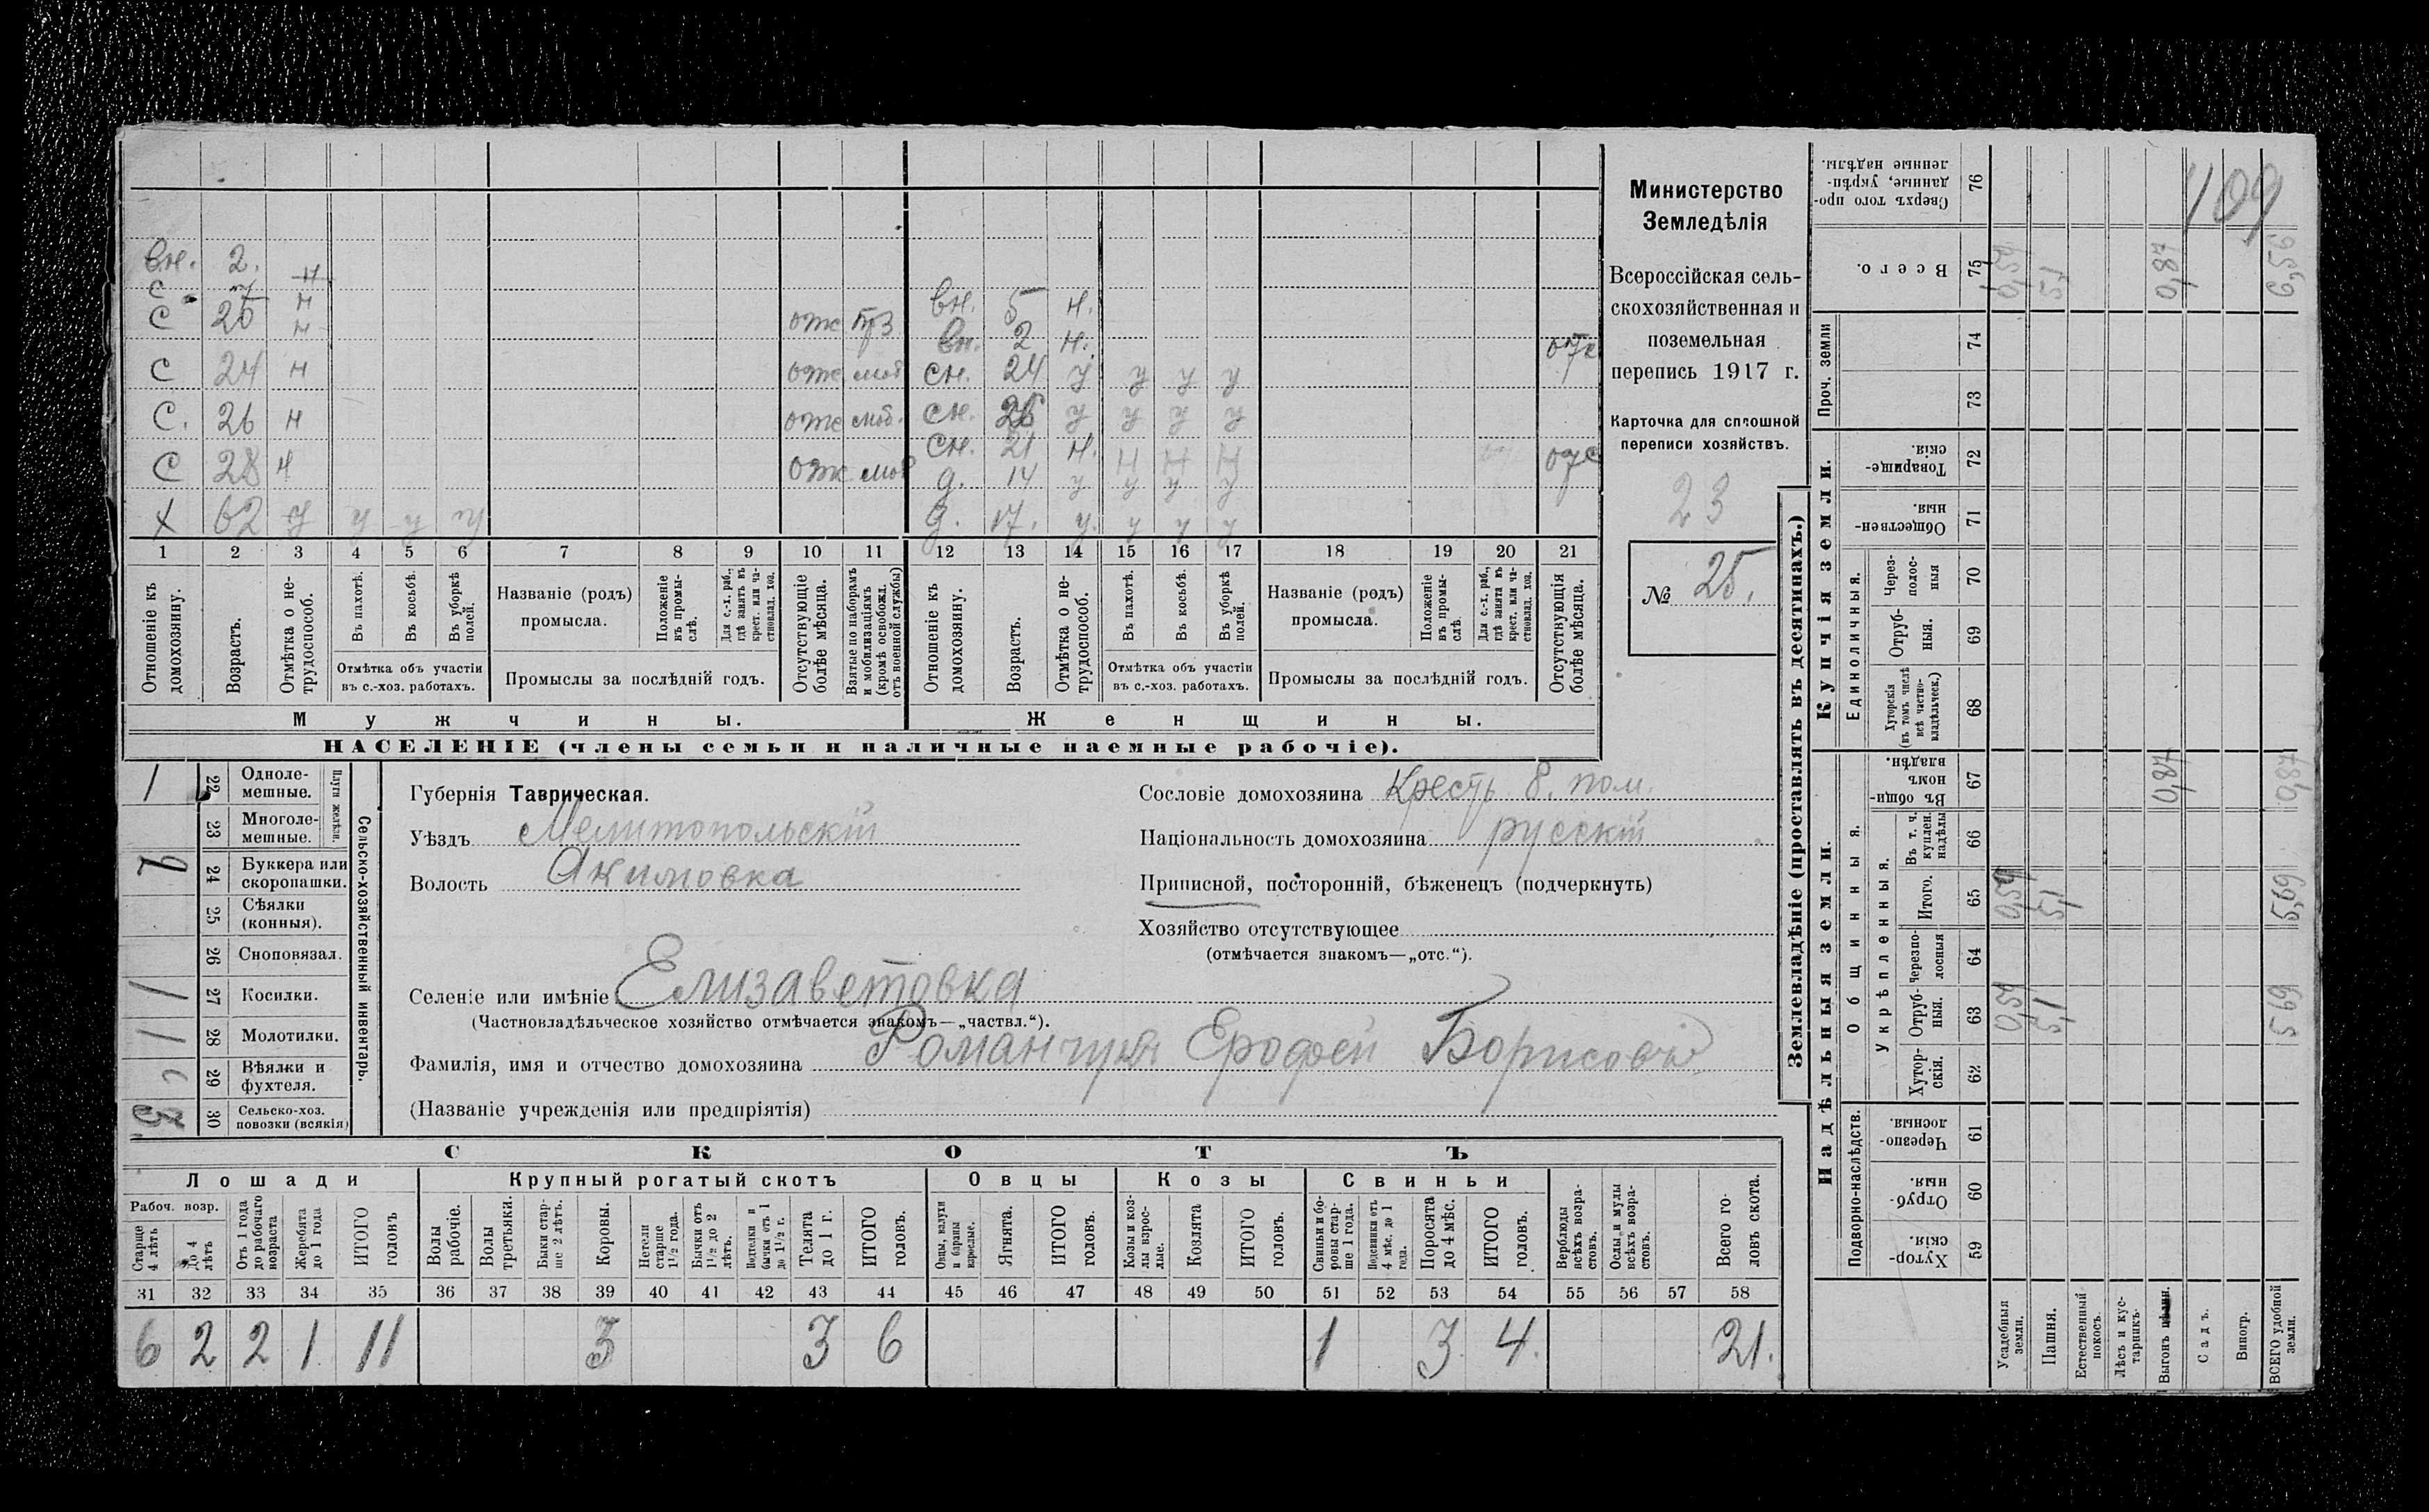 вн. 2. н
с 7 н
с 20 н отс
вн. 5 н.
вн. 2 н. отс
с 24 н отс моб
сн. 24 у у у у
с. 26 н отс моб.
сн. 26 у у у у
сн. 21 н. н н н отс
с 28 н отс моб
д. 14 у у у у
х 62 у у у у
д. 17. у. у у у
1 2 3 4 5 6 7 8 9 10 11 12 13 14 15 16 17 18 19 20 21
Отношеніе къ домохозяину.
Возрастъ.
Отмѣтка о не-трудоспособ.
Въ пахотѣ.
Въ косьбѣ.
Въ уборкѣ полей.
Отмѣтка объ участіи
въ с.-хоз. работахъ.
Названіе (родъ)
промысла.
Положеніе въ промы-слѣ.
Для с.-х. раб., гдѣ занятъ въ крест. или ча-стновлад. хоз.
Промыслы за послѣдній годъ.
Отсутствующіе болѣе мѣсяца.
Взятые по наборамъ и мобилизаціямъ (кромѣ освобожд. отъ военной службы)
Отношеніе къ домохозяину.
Возрастъ.
Отмѣтка о не-трудоспособ.
Въ пахотѣ.
Въ косьбѣ.
Въ уборкѣ полей.
Отмѣтка объ участіи
въ с.-хоз. работахъ.
Названіе (родъ)
промысла.
Положеніе въ промы-слѣ.
Для с.-х. раб., гдѣ занята въ крест. или ча-стновлад. хоз.
Промыслы за послѣдній годъ.
Отсутствующія болѣе мѣсяца.
Мужчины.
Женщины.
НАСЕЛЕНІЕ (члены семьи и наличные наемные рабочіе).
Министерство
Земледѣлія
Всероссійская сель-
скохозяйственная и
поземельная
перепись 1917 г.
Карточка для сплошной
переписи хозяйствъ.
23
№ 25.
Сельско-хозяйственный инвентарь.
Плуги желѣзн.
1 22 Одноле-мешные.
23 Многоле-мешные.
24 Буккера или скоропашки.
25 Сѣялки (конныя).
26 Сноповязал.
1 27 Косилки.
1 28 Молотилки.
29 Вѣялки и фухтеля.
30 Сельско-хоз. повозки (всякія)
Губернія Таврическая.
Уѣздъ Мелитопольскій
Волость Акимовка
Сословіе домохозяина Крестъ б. пом.
Національность домохозяина русскій
Приписной, посторонній, бѣженецъ (подчеркнуть)
Хозяйство отсутствующее
(отмѣчается знакомъ—„отс.“).
Селеніе или имѣніе Елизаветовка
(Частновладѣльческое хозяйство отмѣчается знакомъ—„частвл.“).
Фамилія, имя и отчество домохозяина Романчукъ Ерофей Борисовъ
(Названіе учрежденія или предпріятія)
СКОТЪ
Лошади
Крупный рогатый скотъ
Овцы
Козы
Свиньи
Рабоч. возр.
Старше 4 лѣтъ
До 4 лѣтъ
Отъ 1 года до рабочаго возраста
Жеребята до 1 года
ИТОГО головъ
Волы рабочіе.
Волы третьяки.
Быки стар-ше 2 лѣтъ.
Коровы.
Нетели старше 1½ года.
Бычки отъ 1½ до 2 лѣтъ.
Подтелки и бычки отъ 1 до 1½ г.
Телята до 1 г.
ИТОГО головъ.
Овцы, валухи и бараны взрослые.
Ягнята.
ИТОГО головъ.
Козы и коз-лы взрос-лые.
Козлята
ИТОГО головъ.
Свиньи и бо-ровы стар-ше 1 года.
Подсвинки отъ 4 мѣс. до 1 года.
Поросята до 4 мѣс.
ИТОГО головъ.
Верблюды всѣхъ возра-стовъ.
Ослы и мулы всѣхъ возра-стовъ.
Всего го-ловъ скота.
31 32 33 34 35 36 37 38 39 40 41 42 43 44 45 46 47 48 49 50 51 52 53 54 55 56 57 58
6 2 2 1 11 3 3 6 1 3 4. 21.
Землевладѣніе (проставлять въ десятинахъ.)
Надѣльныя земли.
Купчія земли.
Проч. земли
Подворно-наслѣдств.
Общинныя.
Укрѣпленныя.
Единоличныя.
Хутор-скія. 59
Отруб-ныя. 60
Черезпо-лосныя. 61
Хутор-скія. 62
Отруб-ныя. 63 0,59 5,1 5 69
Черезпо-лосныя 64
Итого. 65 0,59 5,1 5,69
Въ т. ч. куплен. надѣлы 66
Въ общин-номъ владѣн. 67 0,87 0,87
Хуторскія (въ томъ числѣ всѣ частно-владѣльческ.) 68
Отруб-ныя. 69
Через-полос-ныя 70
Обществен-ныя. 71
Товарище-скія. 72
73
74
Всего. 75 0,59 5,1 0,87 6,56
Сверхъ того про-данные, укрѣп-ленные надѣлы. 76
109
Усадебныя земли.
Пашня.
Естественный покосъ.
Лѣсъ и кус-тарникъ.
Выгонъ
Садъ.
Виногр.
ВСЕГО удобной земли.